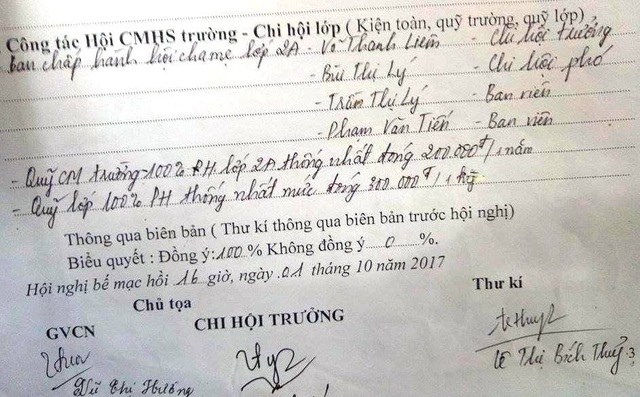 Công tác Hội CMHS trường - Chi hội lớp ( Kiện toàn, quỹ trường, quỹ lớp)
ban chấp hành hội cha mẹ lớp 2A - Võ Thanh Liêm - Chi hội trưởng
- Bùi Thị Lý - Chi hội phó
- Trần Thị Lý - Ban viên
- Phạm Văn Tiến - Ban viên
- Quỹ CM trường 100% PH lớp 2A thống nhất đóng 200.000đ/1 năm
- Quỹ lớp 100% PH thống nhất mức đóng 300.000đ/1 kỳ
Thông qua biên bản ( Thư kí thông qua biên bản trước hội nghị)
Biểu quyết : Đồng ý: 100 % Không đồng ý 0 %.
Hội nghị bế mạc hồi 16 giờ, ngày 01 tháng 10 năm 2017
Chủ tọa Thư kí
GVCN CHI HỘI TRƯỞNG
Lê Thị Bích Thuỷ
Thị Hương